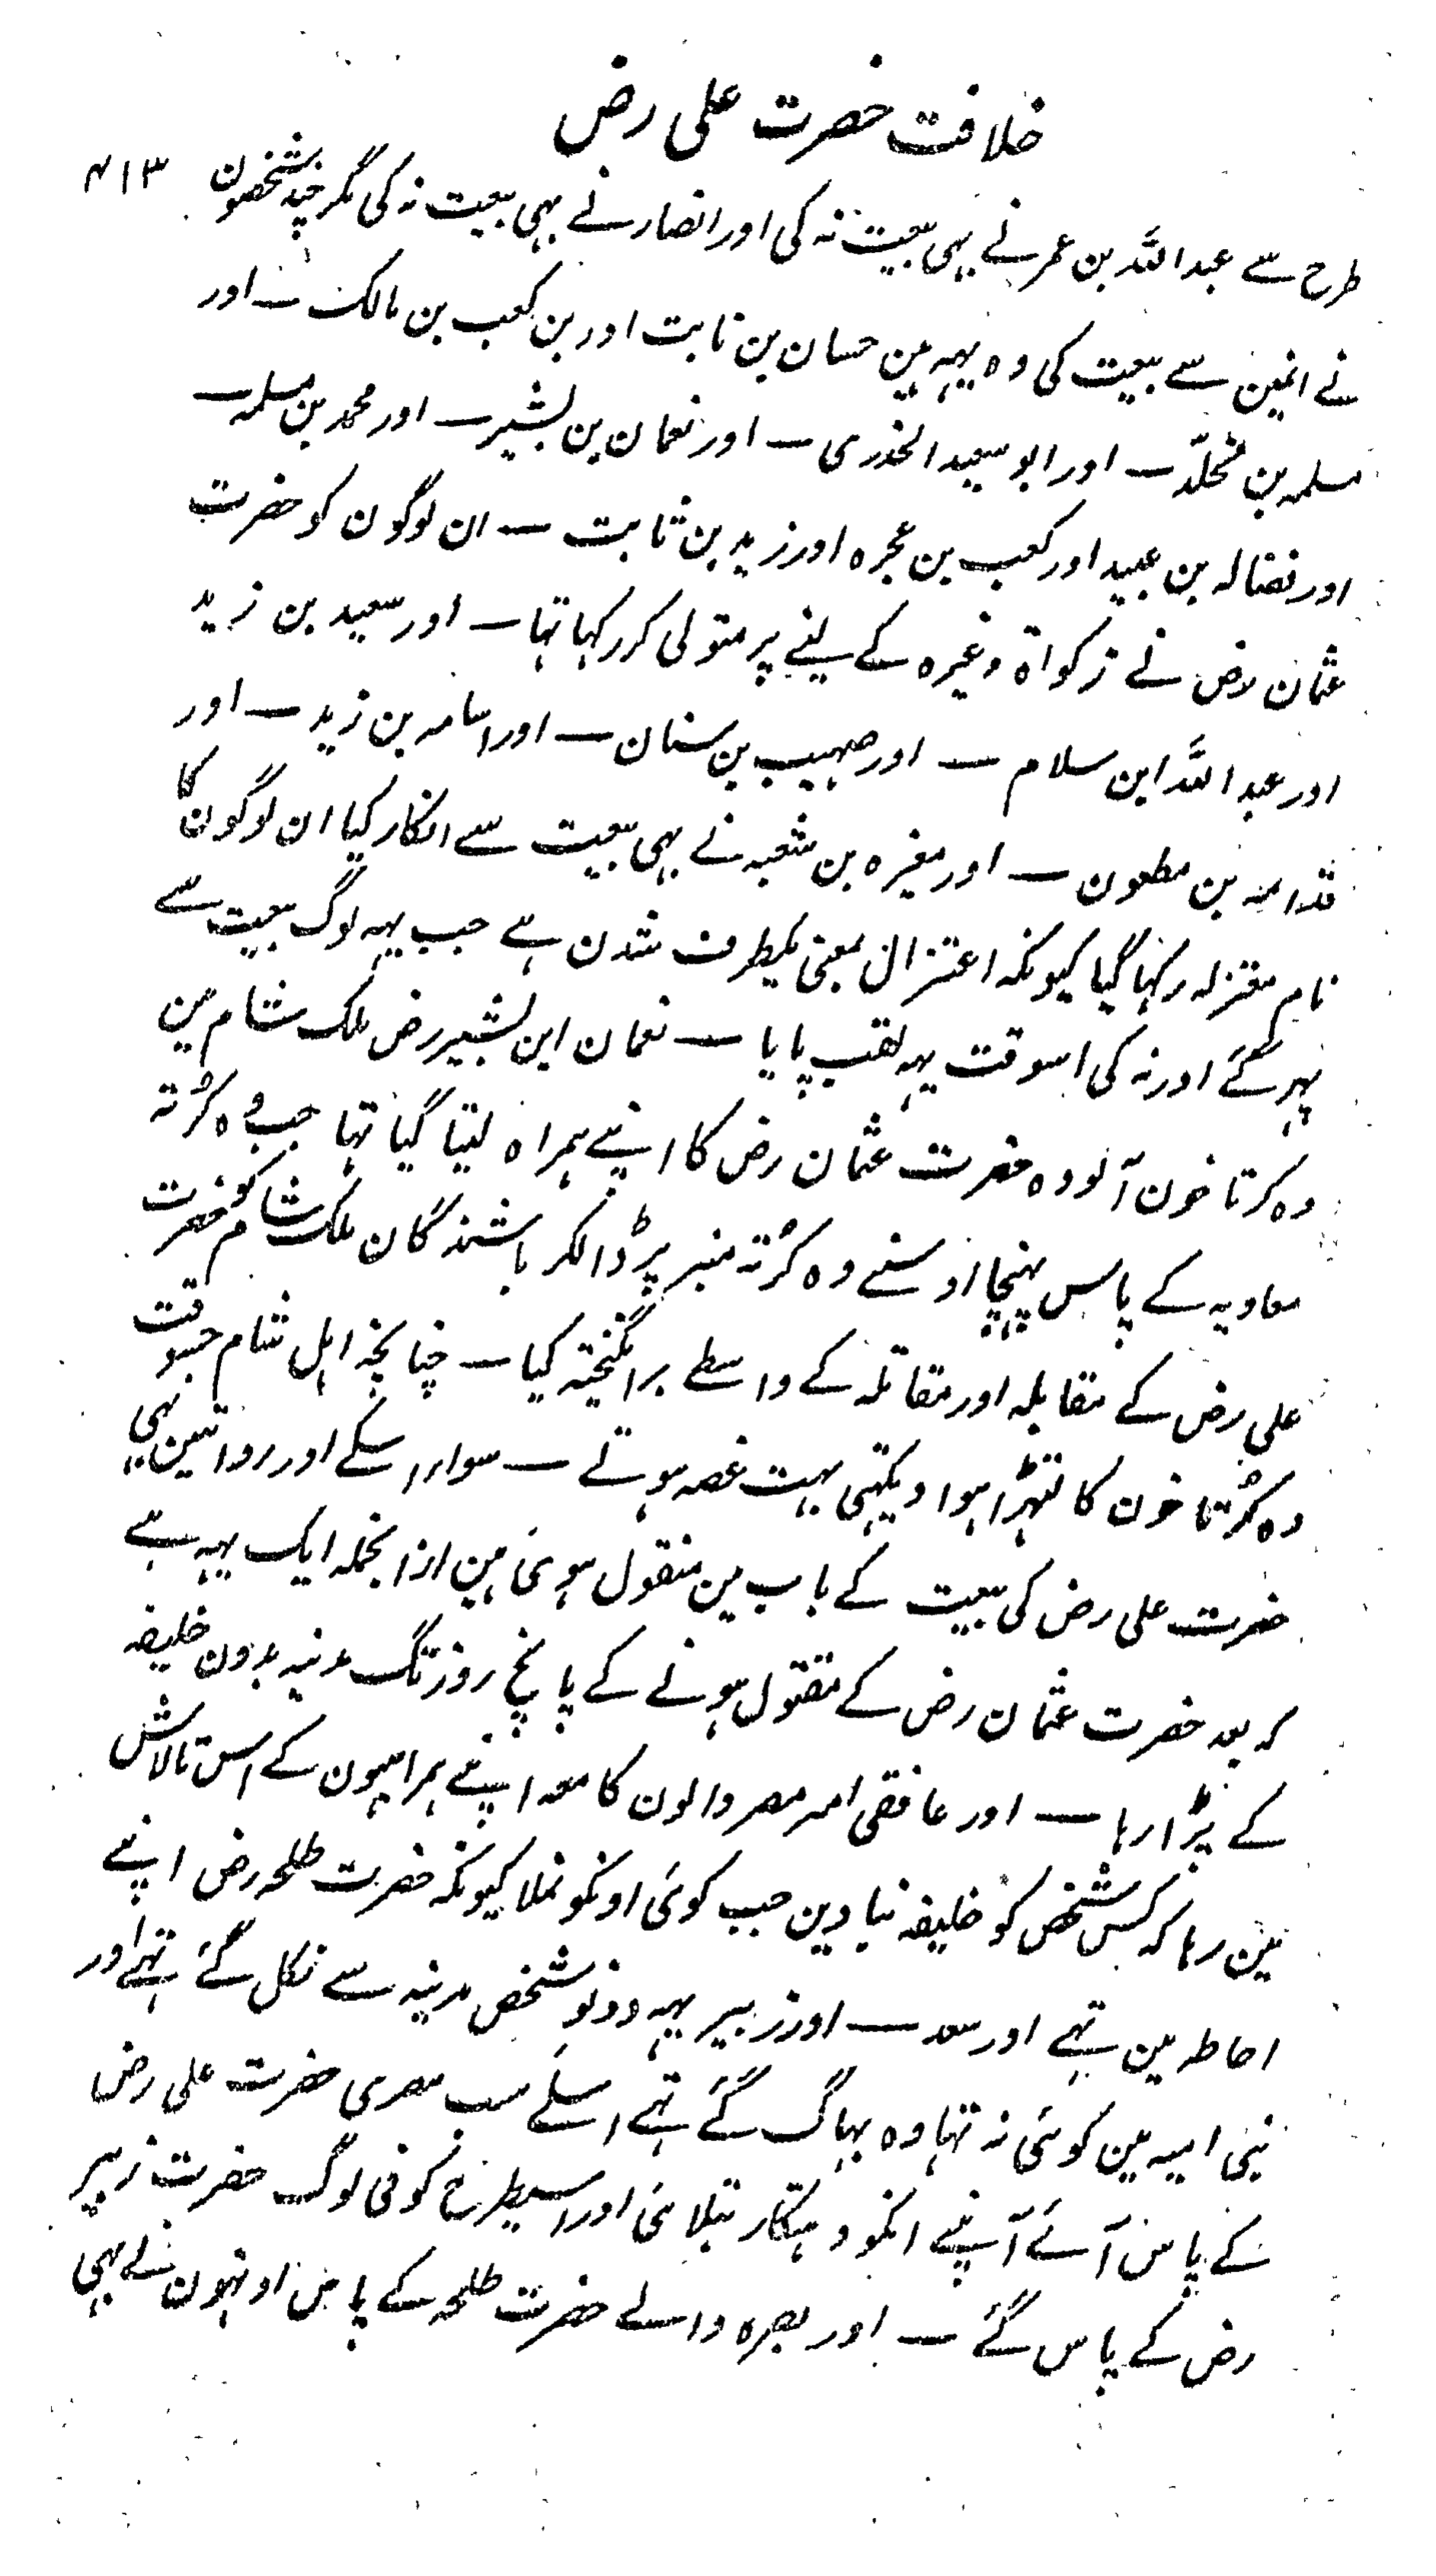 خلافت حضرت علی رض
۴۱۳
طرح سے عبد اللہ بن عمر نے بہی بیعت نہ کی اور انصار نے بہی بیعت نہ کی مگر چند شخصون
نے انمین سے بیعت کی وہ یہہ ہین حسان بن ثابت اور بن کعب بن مالک ـ اور
مسلمہ بن مخلّد ـ اور ابو سعید الخدری ـ اور نعمان بن بشیر ـ اور محمد بن مسلمہ ـ
اور فضالہ بن عبید اور کعب بن عجرہ اور زید بن ثابت ـ ان لوگون کو حضرت
عثمان رض نے زکواۃ وغیرہ کے لینے پر متولی کر رکہا تہا ـ اور سعید بن زید
اور عبد اللہ ابن سلام ـ اور صہیب بن سنان ـ اور اسامہ بن زید ـ اور
قدامہ بن مطعون ـ اور مغیرہ بن شعبہ نے بہی بیعت سے انکار کیا ان لوگون کا
نام معتزلہ رکہا گیا کیونکہ اعتزال بمعنی یکطرف شدن ہے جب یہہ لوگ بیعت سے
پہر گئے اور نہ کی اسوقت یہہ لقب پایا ـ نعمان ابن بشیر رض ملک شام مین
وہ کرتا خون آلودہ حضرت عثمان رض کا اپنے ہمراہ لیتا گیا تہا جب وہ کُرتہ
معاویہ کے پاس پہنچا اوسنے وہ کُرتہ منبر پر ڈالکر باشندگان ملک شام کو حضرت
علی رض کے مقابلہ اور مقاتلہ کے واسطے برانگیختہ کیا ـ چنانچہ اہل شام جسوقت
وہ کُرتا خون کا لتہڑا ہوا دیکہتی بہت غصہ ہوتے ـ سوار اسکے اور رواتین بہی
حضرت علی رض کی بیعت کے باب مین منقول ہوئی ہین ازانجملہ ایک یہہ ہے
کہ بعد حضرت عثمان رض کے مقتول ہونے کے پانچ روز تک مدنیہ بدون خلیفہ
کے پڑا رہا ـ اور غافقی امیر مصر والون کا معہ اپنے ہمراہیون کے اس تالاش
مین رہا کہ کس شخص کو خلیفہ بنا دین جب کوئی اونکو نملا کیونکہ حضرت طلحہ رض اپنے
احاطہ مین تہے اور سعد ـ اور زبیر یہہ دونو شخص مدنیہ سے نکل گئے تہے اور
بنی امیہ مین کوئی نہ تہا وہ بہاگ گئے تہے اسلئے سب مصری حضرت علی رض
کے پاس آئے آپنے انکو دہتکار بتلائی اور اسیطرح کوفی لوگ حضرت زبیر
رض کے پاس گئے ـ اور بصرہ والے حضرت طلحہ کے پاس اونہون نے بہی